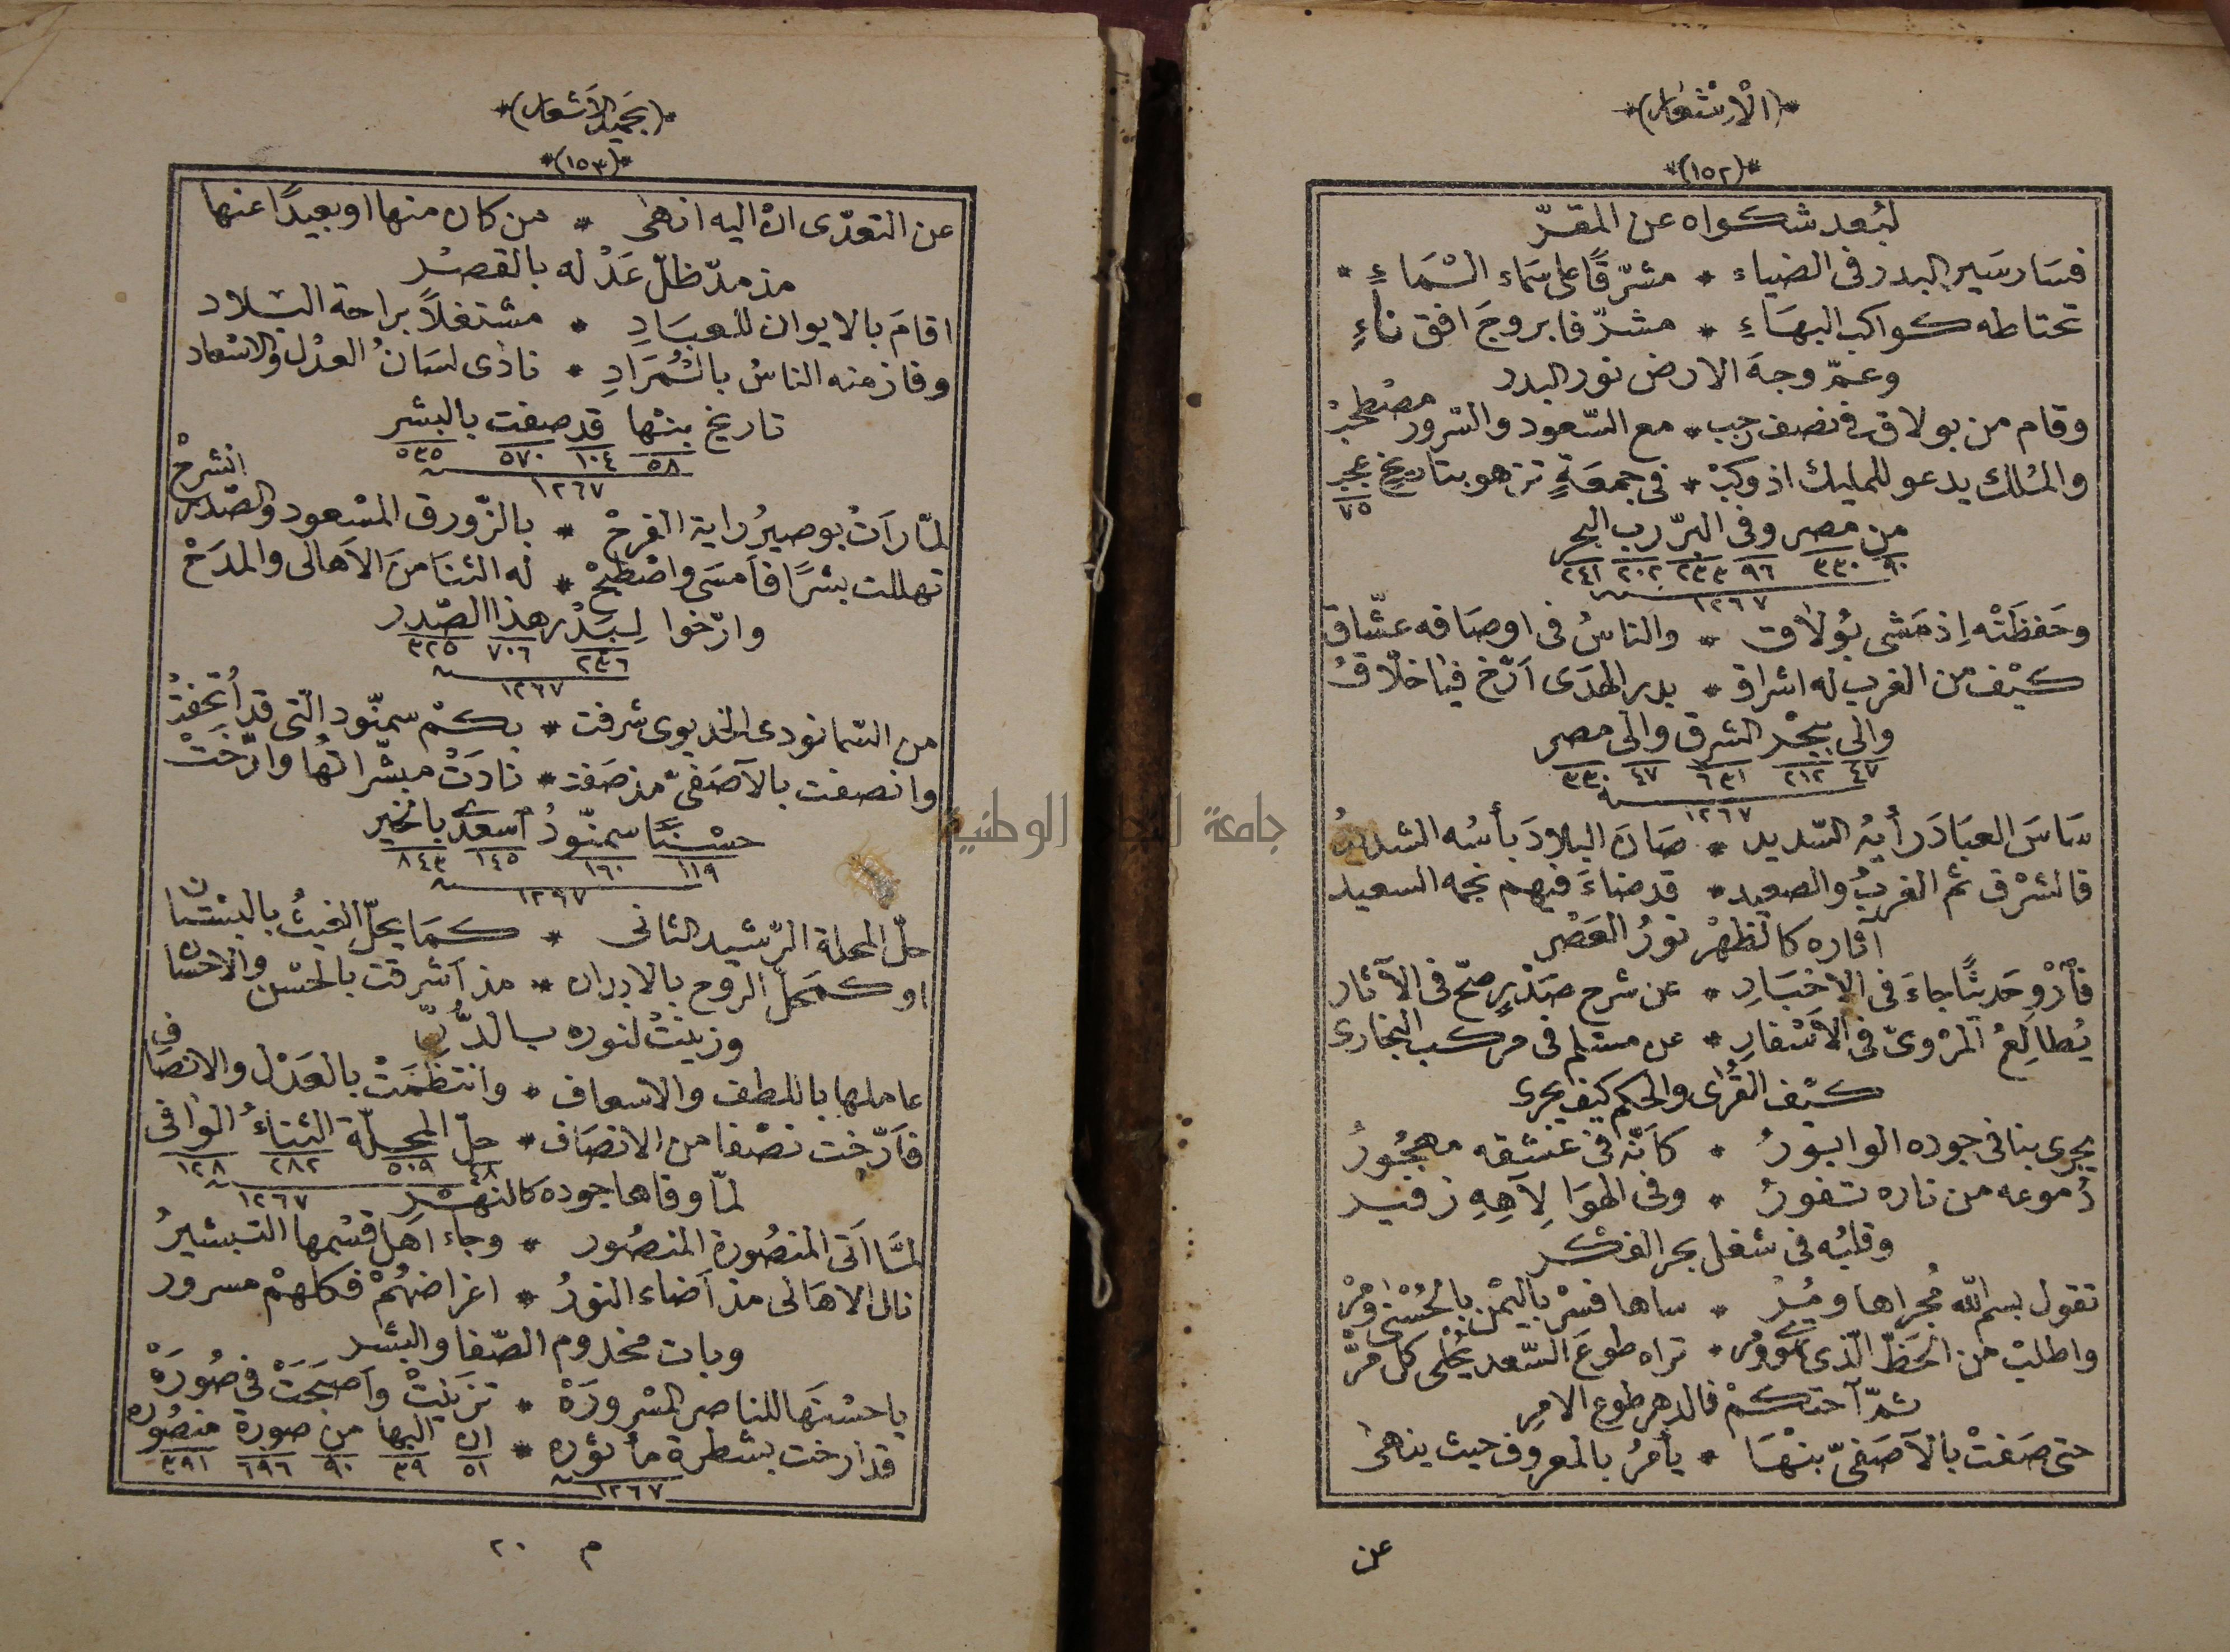 *(الْاَشْعَار)*
*(١٥٢)*
لبُعد شكواه عن المقرّ
فسَار سَير البدر فى الضياء * مشرّقًا على سَماء السْمَاءِ *
تحتاطه كواكب البهَاءِ * مشرّفا بروجَ افق ناءٍ
وعمّ وجهَ الارض نور البدر
وقام من بولاق فى نصف رجب * مع السّعود والسّرور مصْطحبْ
والمْلك يدعو للمليك اذ وكبْ * فى جمعَةٍ تزهو بتاريخ عجب
٧٥
من مصر وفى البرّ رب البحر
٩٠ ٣٣٠ ٩٦ ٢٣٣ ٢٠٢ ٢٤١
١٢٦٧
وحَفظَتْه اِذ مَشى بُولاق * والناسُ فى اوصَافه عشّاق
كيْف من الغرب له اشراق * بدر الهدَى اَرّخ فيا خلّاقُ
والى ببحْر الشرق والى مصر
٤٧ ٢١٢ ٦٣١ ٤٧ ٣٣٠
١٢٦٧
سَاسَ العبَادَ رأيهُ السّديد * صَانَ البلادَ بأسُه الشديدُ
فالشرْق ثم الغربُ والصعيد * قد ضاءَ فيهم نجمه السعيد
آثاره كالظهْر نورُ العَصْر
فأرْوِ حَديثًا جاءَ فى الاخبَارِ * عن شرح صَدْرٍ صحّ فى الآثار
يُطالِعُ المرْوىّ فى الاَسْفارِ * عن مسْلم فى مركب البخارى
كيْف القُرٰى والحكم كيف يجرى
يجرى بنا فى جوده الوابورُ * كأنّه فى عشقه مهجُورُ
دُموعه من ناره تفورُ * وفى الهوَا لِآهِهِ زفير
وقلبُه فى شغل بحر الفكر
تقول بسم الله مُجراها ومُرْ * ساها فسِرْ باليمْن بالحُسْنٰى ومُرْ
واطلبْ من الحَظّ الّذى * تراه طوعَ السّعد يُحْلى كل مُرّْ
ثمّ احتكمْ فالدهر طوع الامرِ
حتى صَفتْ بالآصَفىّ بنْهَا * يأمُرُ بالمعروف حيث ينهى
عن
*(بحميد الاَشعار)*
*(١٥٣)*
عن التعدّى انْ اليه انهى * من كان منها او بعيدًا عنها
مذ مدّ ظلّ عَدْله بالقصْر
اقامَ بالايوان للعبَادِ * مشتغلاً براحة البلاد
وفاز منه الناسُ بالمُرَادِ * نادى لسَانُ العدْل والاسْعاد
تاريخ بنْها قد صفت بالبشر
٥٨ ١٠٤ ٥٧٠ ٥٣٥
١٢٦٧
لمّا رَاَتْ بوصيرُ راية الفرحْ * بالزّورق المسْعود والصّدر انشرحْ
تهللت بشرًا فاَمسَى واصْطبحْ * له الثنَا منَ الاَهالى والمدَحْ
وارّخوا لِبَدْر هذا الصّدر
٢٣٦ ٧٠٦ ٣٢٥
١٢٦٧
من السّمانودى الخديوى شرفت * بكمْ سمنّود الّتى قد اُتحِفتْ
وانصفت بالآصَفىّ مذ صَفت * نادَتْ مبشّراتها وارّخَتْ
حسْنًا سمنّودُ اسعدى بالخير
١١٩ ١٦٠ ١٤٥ ٨٤٣
١٢٦٧
حلّ المحلة الرّشيد الثانى * كمَا يحلّ الغيثُ بالبسْتان
او كمحَلّ الرّوح بالابدان * مذ اَشرقت بالحُسْن والاحْسَان
وزيّنتْ لنوره بالدُّرّ
عاملها باللطف والاسعاف * وانتظَمَتْ بالعَدْل والانصَاف
فاَرّخت نصْفا من الانصَاف * حلّ المحلّة الثناءُ الوَافى
٤٨ ٥٠٩ ٢٨٢ ١٢٨
١٢٦٧
لمّا وفاها جوده كالنهْر
لمَّا اَتَى المنصُورة المنصُور * وجاء اَهلَ قسْمها التبشيرُ
نال الاهَالى مذ اَضاء النورُ * اغراضهُمْ فكلهمْ مسرور
وبات مخدوم الصّفا والبشر
يا حسْنَها للناصر المسْرورَهْ * تزيّنتْ واَصبَحَتْ فى صُورَهْ
قد ارخت بشطرة مأثوره * ان البها من صورة منصوره
٥١ ٣٩ ٩٠ ٦٩٦ ٣٩١
١٢٦٧
م ٢٠
جامعة النجاح الوطنية